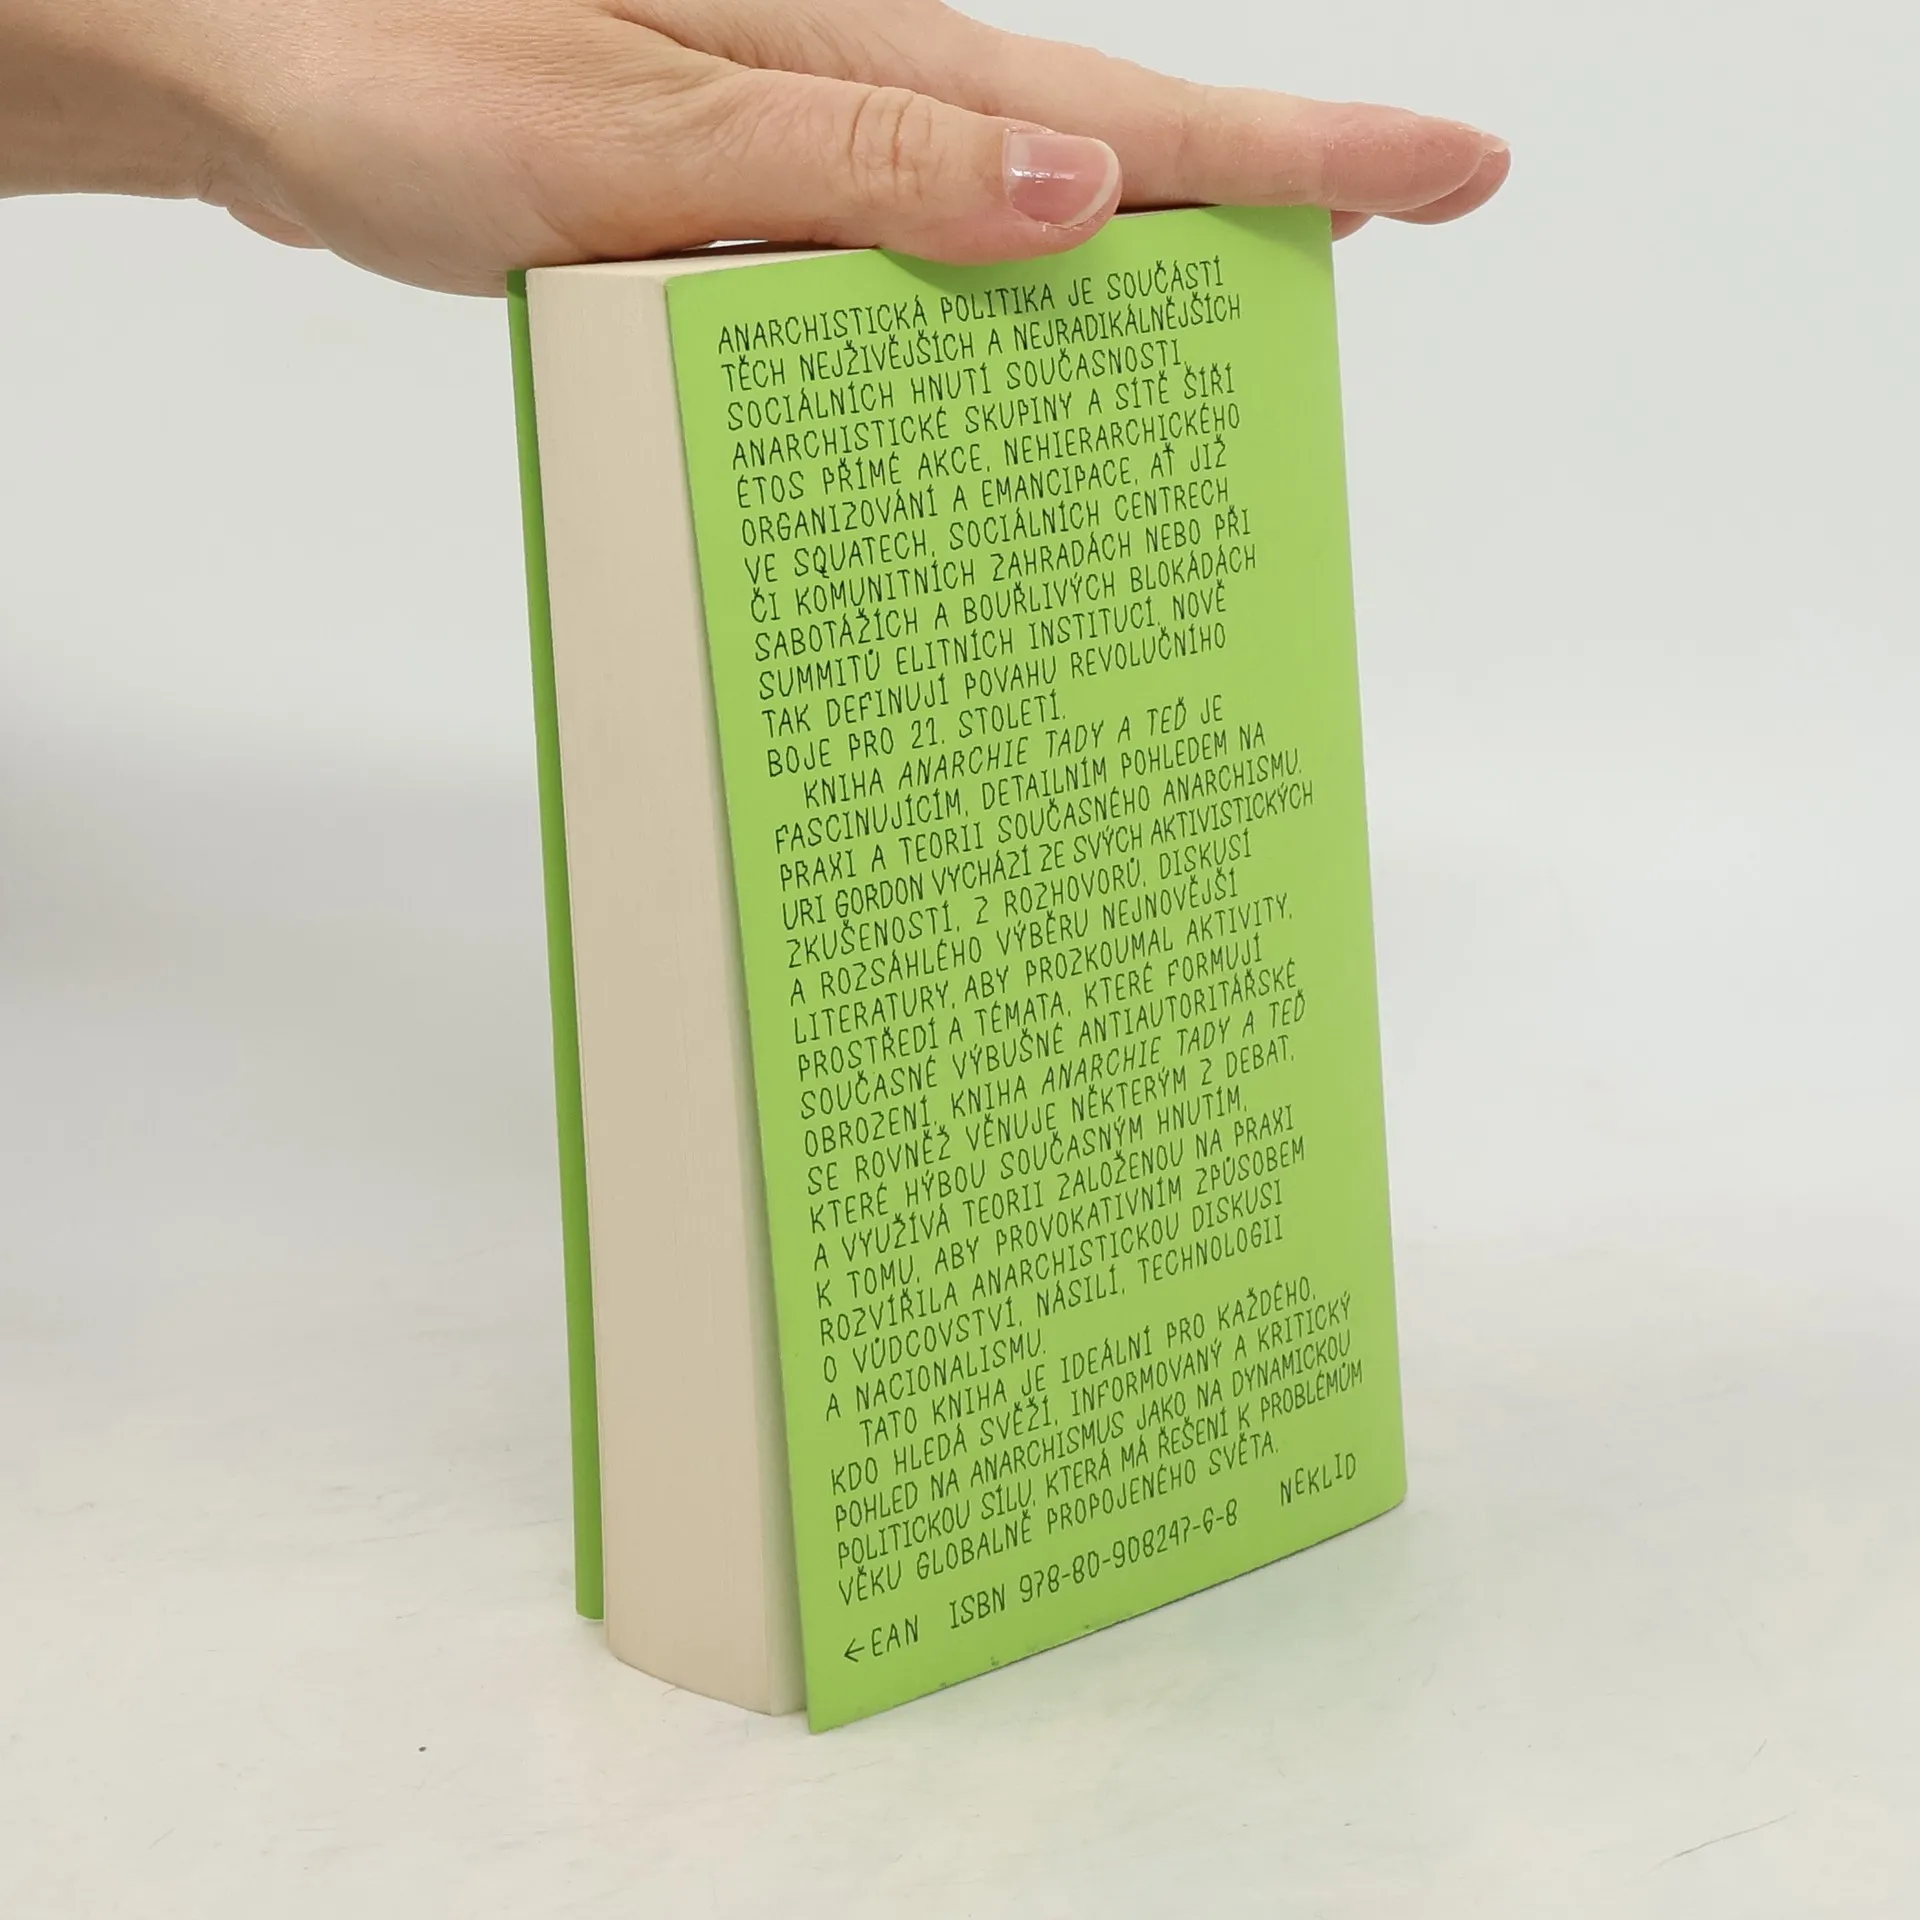 ANARCHISTICKÁ POLITIKA JE SOUČÁSTÍ
TĚCH NEJŽIVĚJŠÍCH A NEJRADIKÁLNĚJŠÍCH
SOCIÁLNÍCH HNUTÍ SOUČASNOSTI.
ANARCHISTICKÉ SKUPINY A SÍTĚ ŠÍŘÍ
ÉTOS PŘÍMÉ AKCE, NEHIERARCHICKÉHO
ORGANIZOVÁNÍ A EMANCIPACE, AŤ JIŽ
VE SQUATECH, SOCIÁLNÍCH CENTRECH
ČI KOMUNITNÍCH ZAHRADÁCH NEBO PŘI
SABOTÁŽÍCH A BOUŘLIVÝCH BLOKÁDÁCH
SUMMITŮ ELITNÍCH INSTITUCÍ. NOVĚ
TAK DEFINUJÍ POVAHU REVOLUČNÍHO
BOJE PRO 21. STOLETÍ.
KNIHA ANARCHIE TADY A TEĎ JE
FASCINUJÍCÍM, DETAILNÍM POHLEDEM NA
PRAXI A TEORII SOUČASNÉHO ANARCHISMU.
URI GORDON VYCHÁZÍ ZE SVÝCH AKTIVISTICKÝCH
ZKUŠENOSTÍ, Z ROZHOVORŮ, DISKUSÍ
A ROZSÁHLÉHO VÝBĚRU NEJNOVĚJŠÍ
LITERATURY, ABY PROZKOUMAL AKTIVITY,
PROSTŘEDÍ A TÉMATA, KTERÉ FORMUJÍ
SOUČASNÉ VÝBUŠNÉ ANTIAUTORITÁŘSKÉ
OBROZENÍ. KNIHA ANARCHIE TADY A TEĎ
SE ROVNĚŽ VĚNUJE NĚKTERÝM Z DEBAT,
KTERÉ HÝBOU SOUČASNÝM HNUTÍM,
A VYUŽÍVÁ TEORII ZALOŽENOU NA PRAXI
K TOMU, ABY PROVOKATIVNÍM ZPŮSOBEM
ROZVÍŘILA ANARCHISTICKOU DISKUSI
O VŮDCOVSTVÍ, NÁSILÍ, TECHNOLOGII
A NACIONALISMU.
TATO KNIHA JE IDEÁLNÍ PRO KAŽDÉHO,
KDO HLEDÁ SVĚŽÍ, INFORMOVANÝ A KRITICKÝ
POHLED NA ANARCHISMUS JAKO NA DYNAMICKOU
POLITICKOU SÍLU, KTERÁ MÁ ŘEŠENÍ K PROBLÉMŮM
VĚKU GLOBALNĚ PROPOJENÉHO SVĚTA.
←EAN ISBN 978-80-908247-6-8 NEKLID